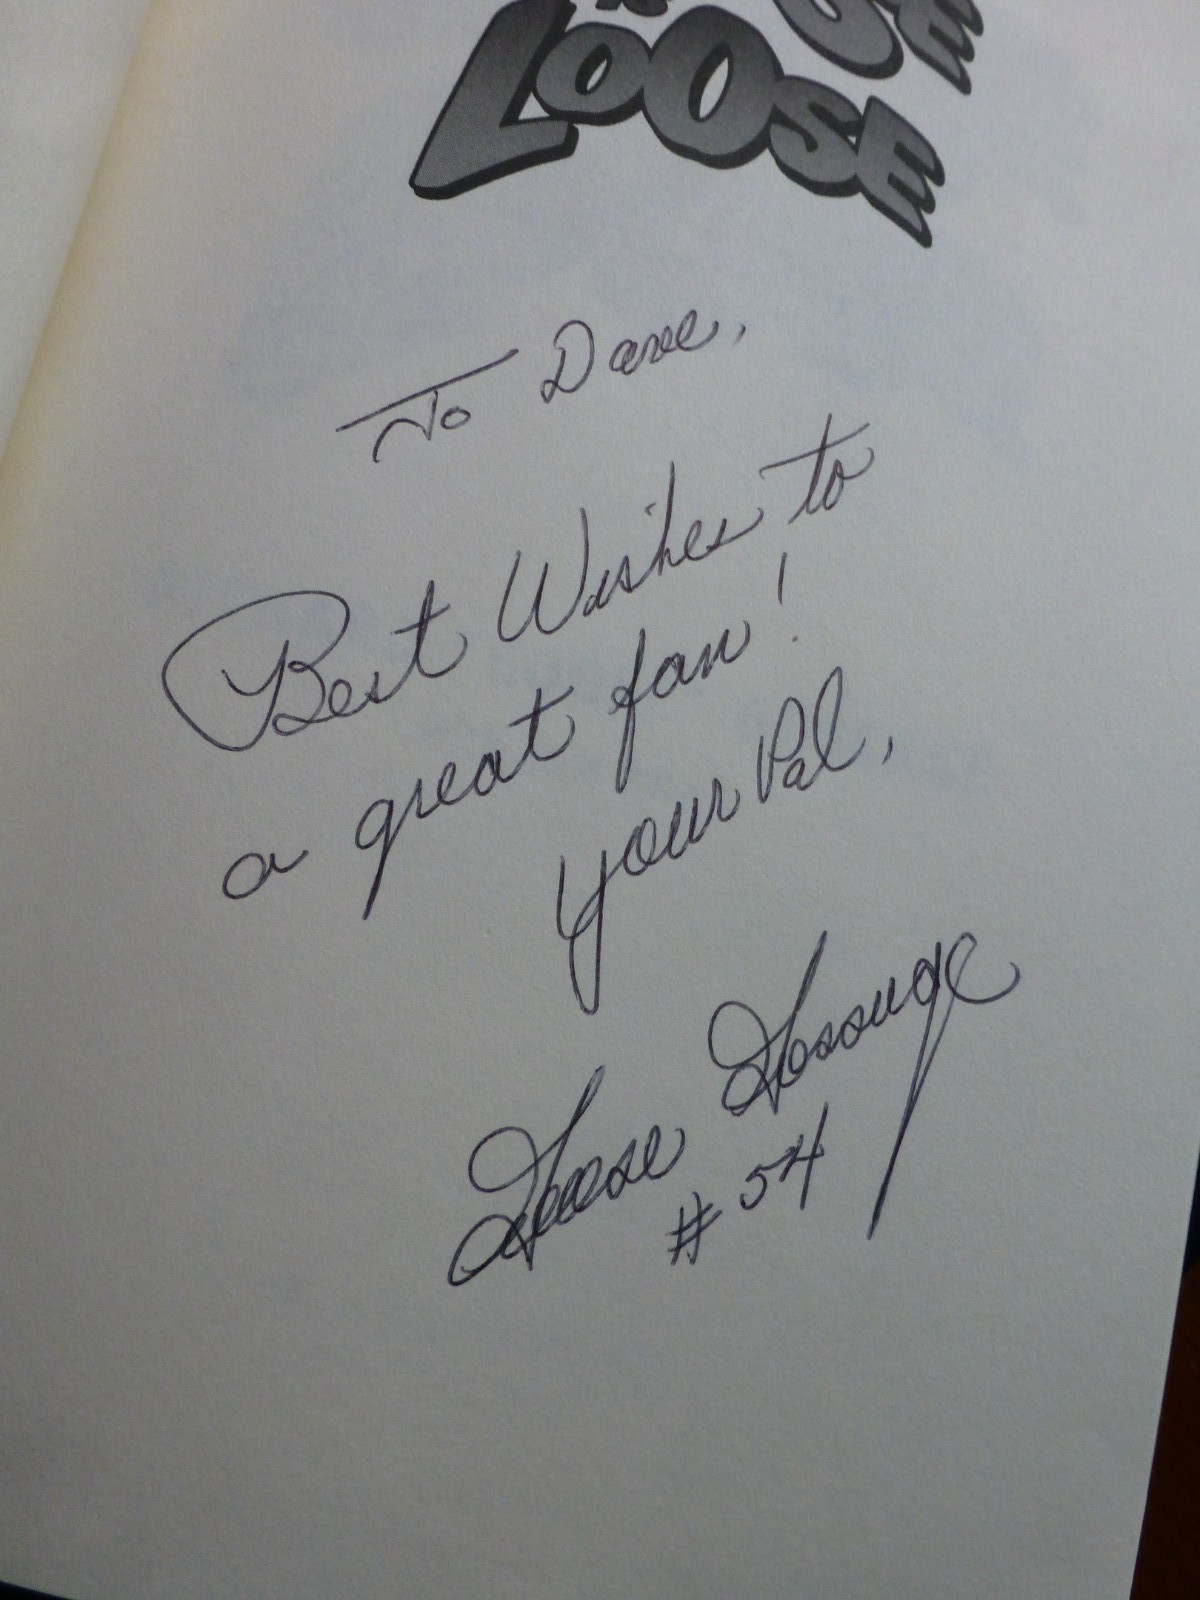 LOOSE
To Dave,
Best Wishes to
a great fan!
your Pal,
Goose Gossage
# 54